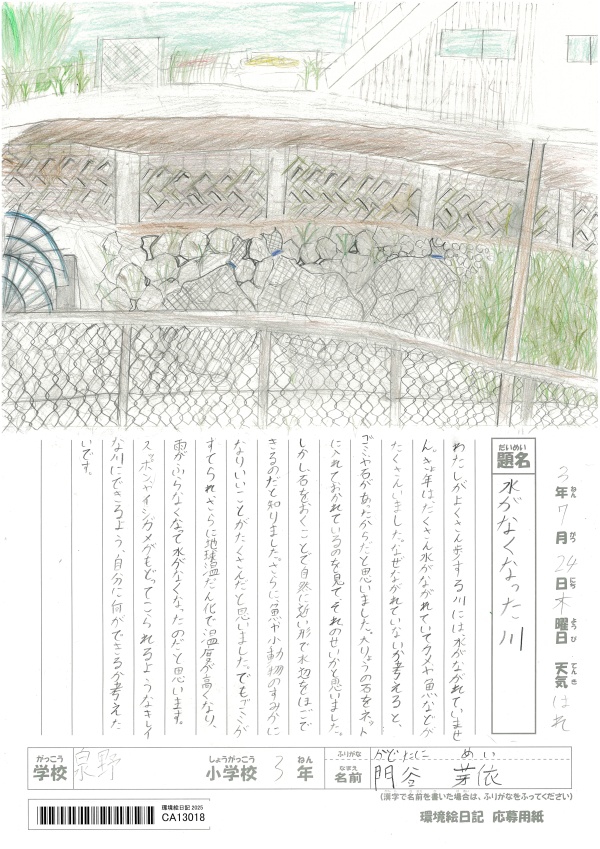 3年7月24日木曜日 天気はれ
ねん がつ にち ようび てんき
だいめい
題名
水がなくなった川
わたしがよくさん歩する川には水がながれていませ
ん。きょ年は、たくさん水がながれていてカメや魚などが
たくさんいました。なぜながれていないか考えると、
ゴミや石があったからだと思いました。大りょうの石をネット
に入れておかれているのを見て、それのせいかと思いました。
しかし石をおくことで自然に近い形で水辺をほごで
きるのだと知りました。さらに、魚や小動物のすみかに
なりいいことがたくさんだと思いました。でもゴミが
すてられさらに地球温だん化で温度が高くなり、
雨がふらなくなって水がなくなったのだと思います。
スッポンやイシガメがもどってこられるようなキレイ
な川にできるよう、自分に何ができるか考えた
いです。
がっこう
学校
泉野
しょうがっこう
小学校
3
ねん
年
ふりがな
かどたに めい
なまえ
名前
門谷 芽依
(漢字で名前を書いた場合は、ふりがなをふってください)
環境絵日記 2025
CA13018
環境絵日記 応募用紙